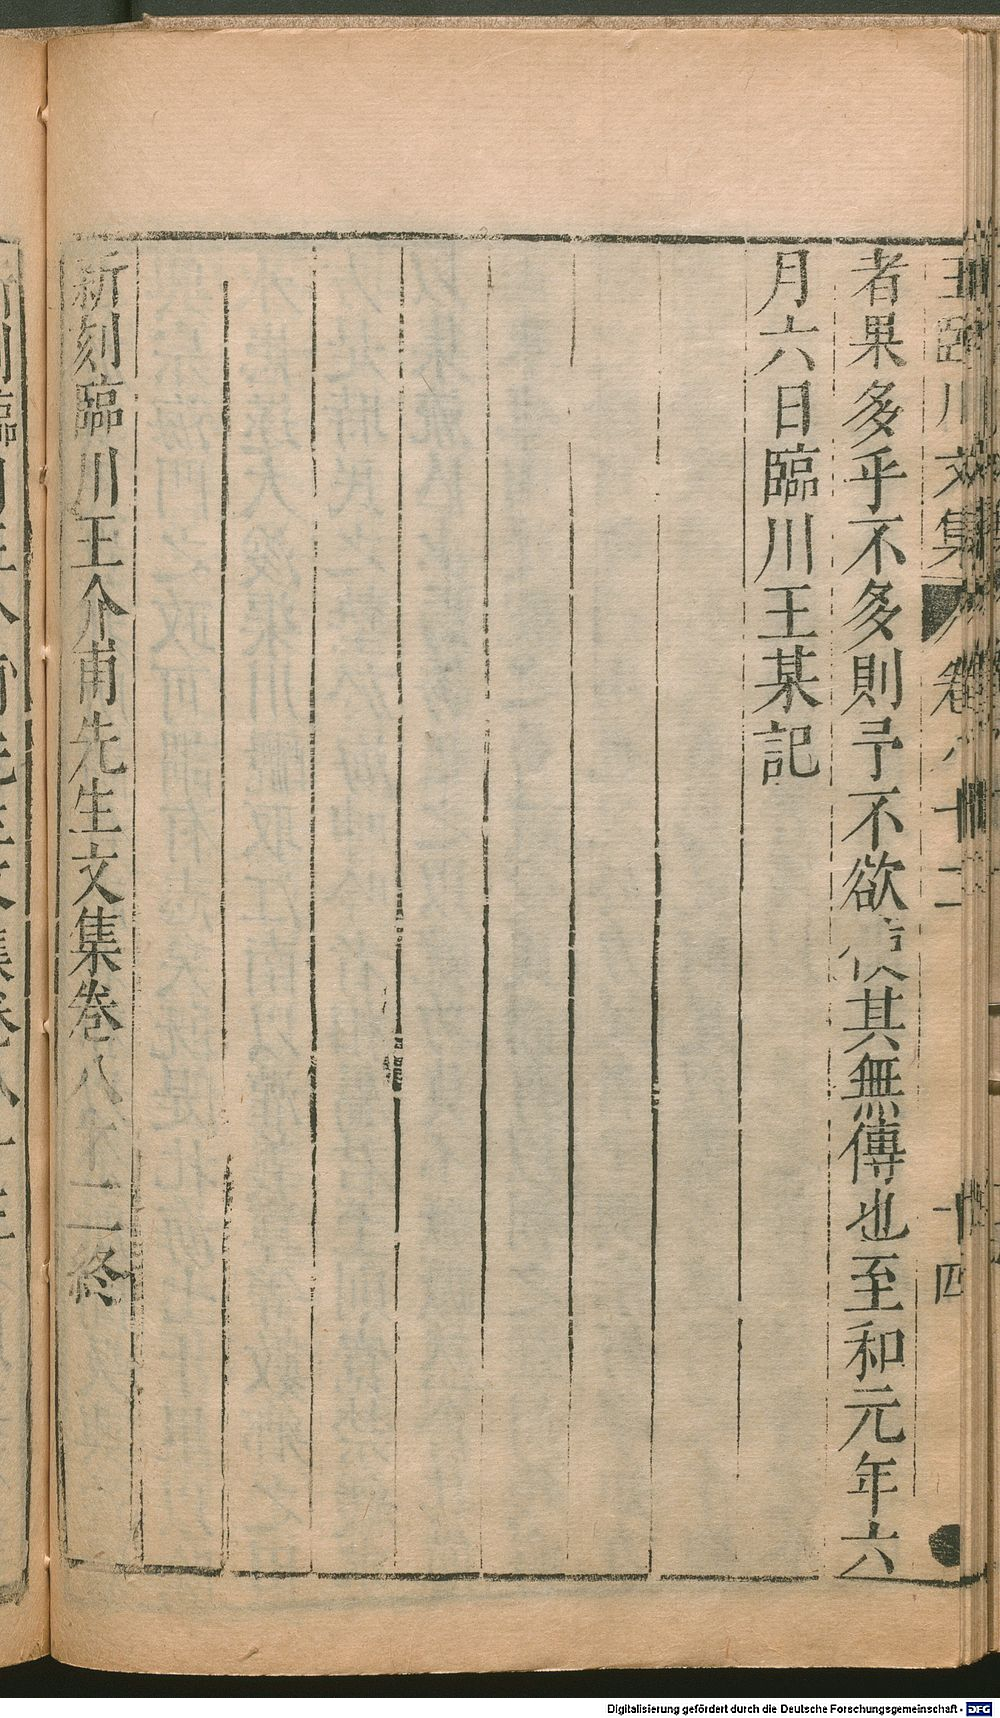 王臨川文集 卷八十二 十四
者果多乎不多則予不欲使其無傳也至和元年六
月六日臨川王某記
新刻臨川王介甫先生文集卷八十二終
Digitalisierung gefördert durch die Deutsche Forschungsgemeinschaft - DFG